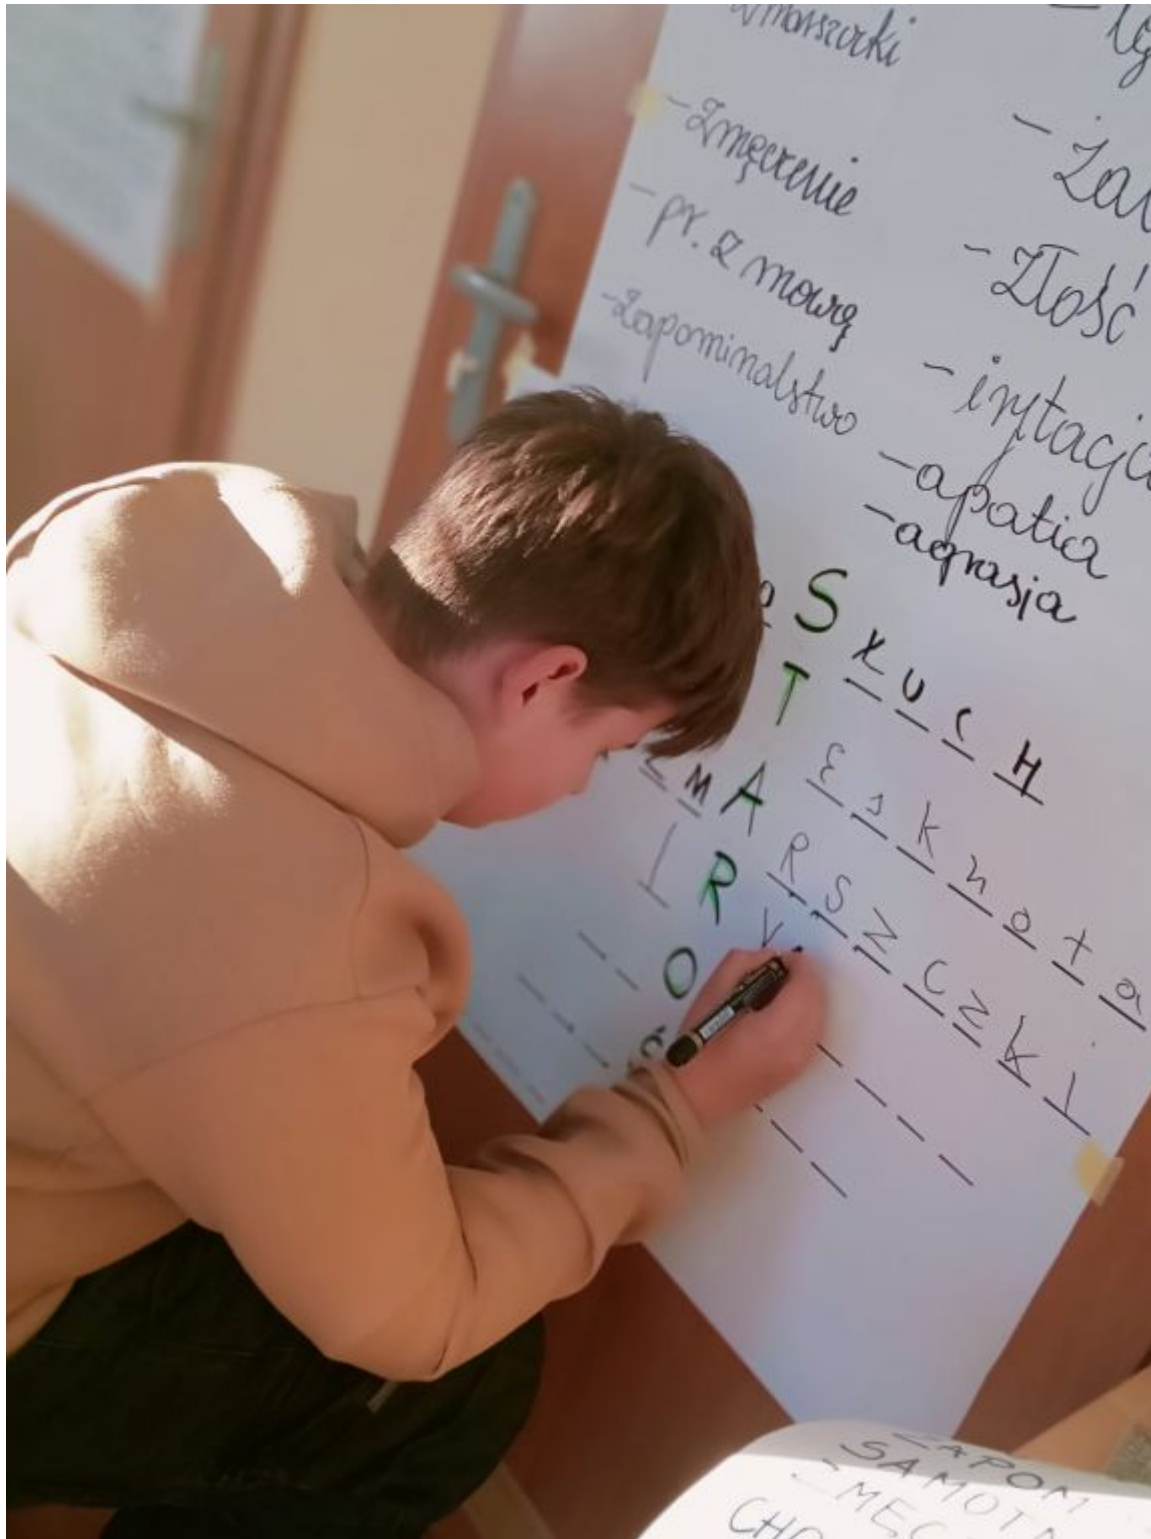 zmarszczki
- Zmęczenie
- pr. z mową
- Zapominalstwo
- Żal
- Złość
- irytacja
- apatia
- agrasja
S ŁUCH
T Esknota
ZMARSZCZKI
R
O
Ś
ZAPOM
SAMOTN
ZMĘC
CHO